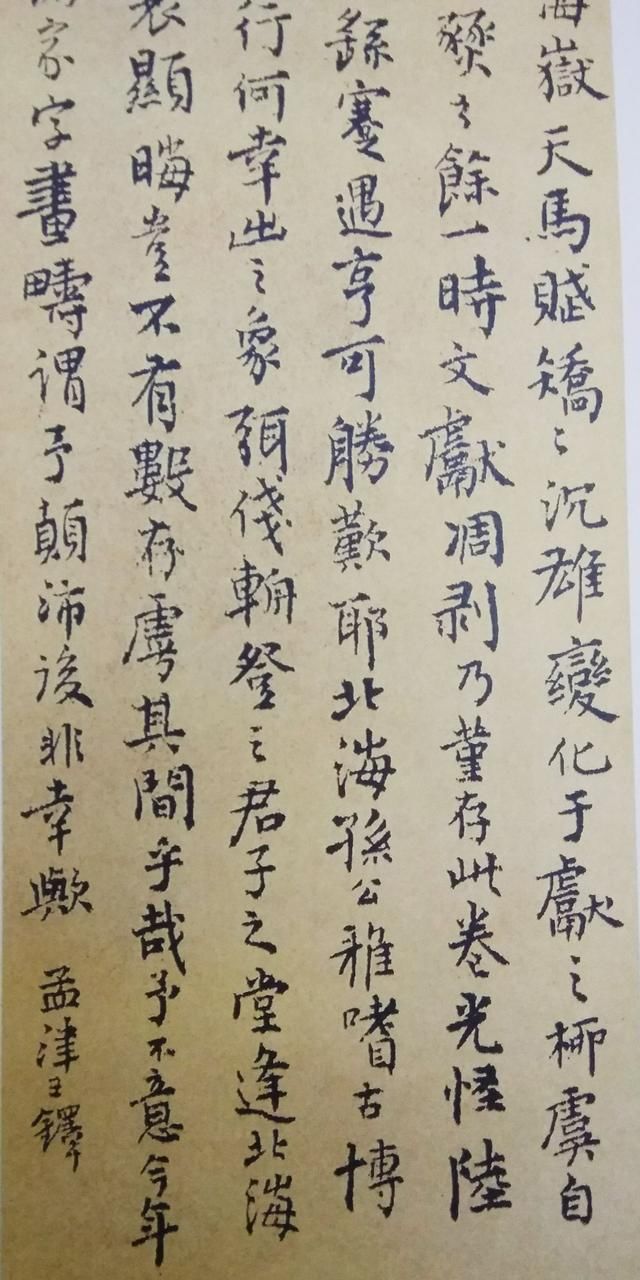 海嶽天馬賦矯々沉雄變化于獻之柳虞自
燹之餘一時文獻凋剥乃堇存此卷光怪陸
繇蹇遇亨可勝歎耶北海孫公雅嗜古博
行何幸出之象弭俴輈登之君子之堂逢北海
顯晦豈不有數存虖其間乎哉予不意今年
家字畫疇謂予顛沛後非幸歟 孟津王鐸